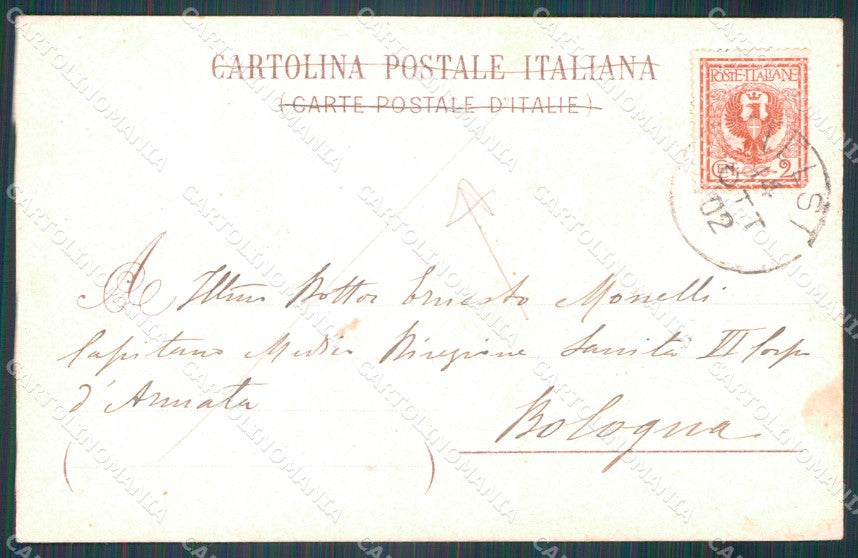 CARTOLINA POSTALE ITALIANA
(CARTE POSTALE D'ITALIE)
POSTE·ITALIANE
CEN 2
14
OTT
02
All' Illmo Dottor Ernesto Monelli
Capitano Medico Direzione Sanità VI Corpo
d'Armata
Bologna
CARTOLINOMANIA